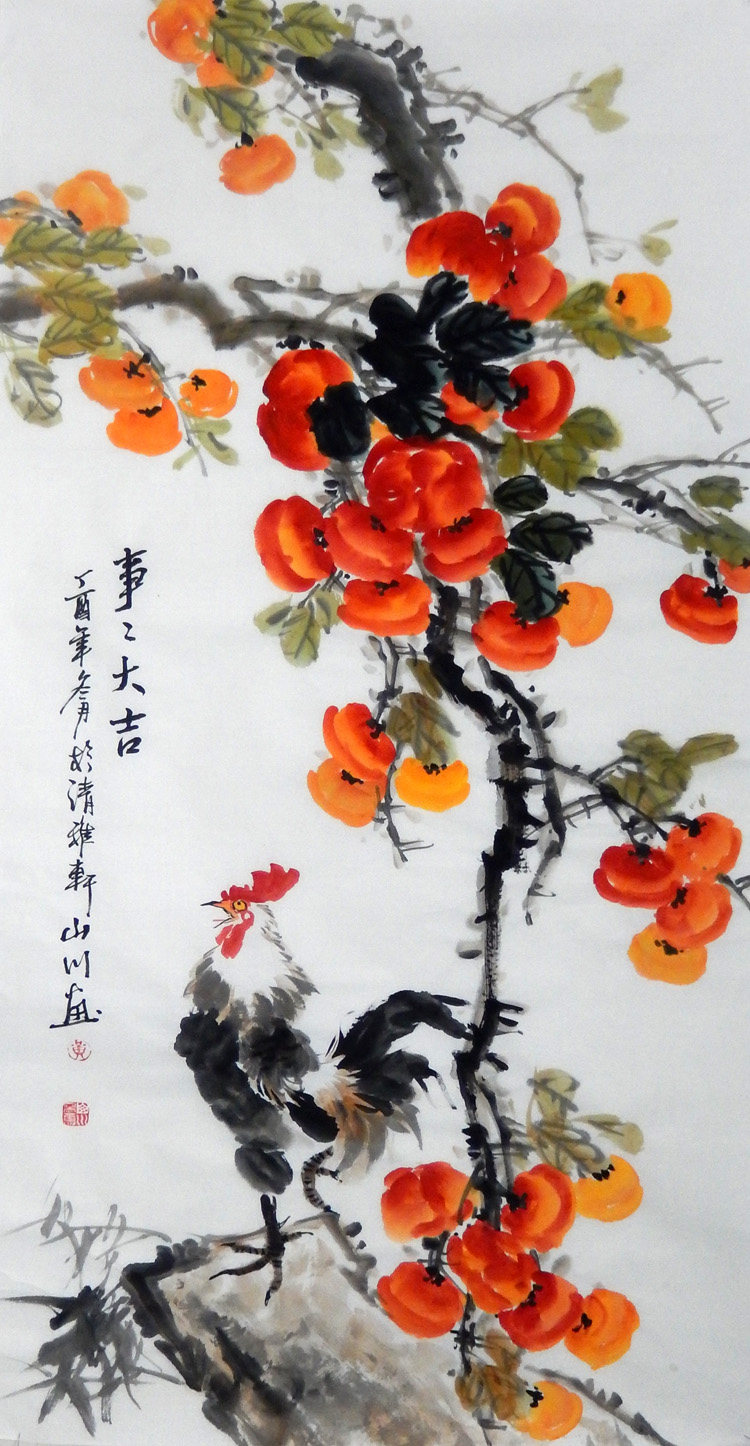 事〻大吉
丁酉年冬月於清雅軒山川画